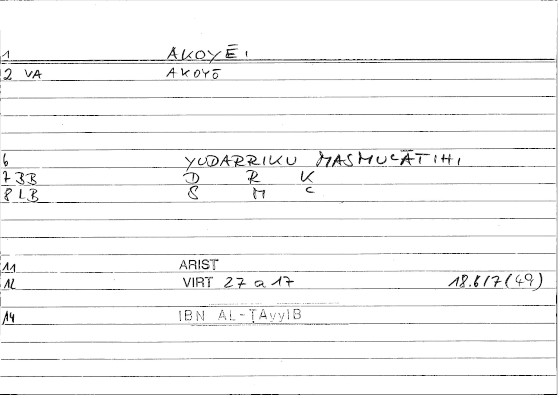 1 AKOYĒI
2 VA AKOYŌ
6 YUDARRIKU MASMUʿĀTIHI
7 BB D R K
8 LB S M ʿ
11 ARIST
12 VIRT 27 a 17 18.6/7(49)
14 IBN AL-ṬAyyIB